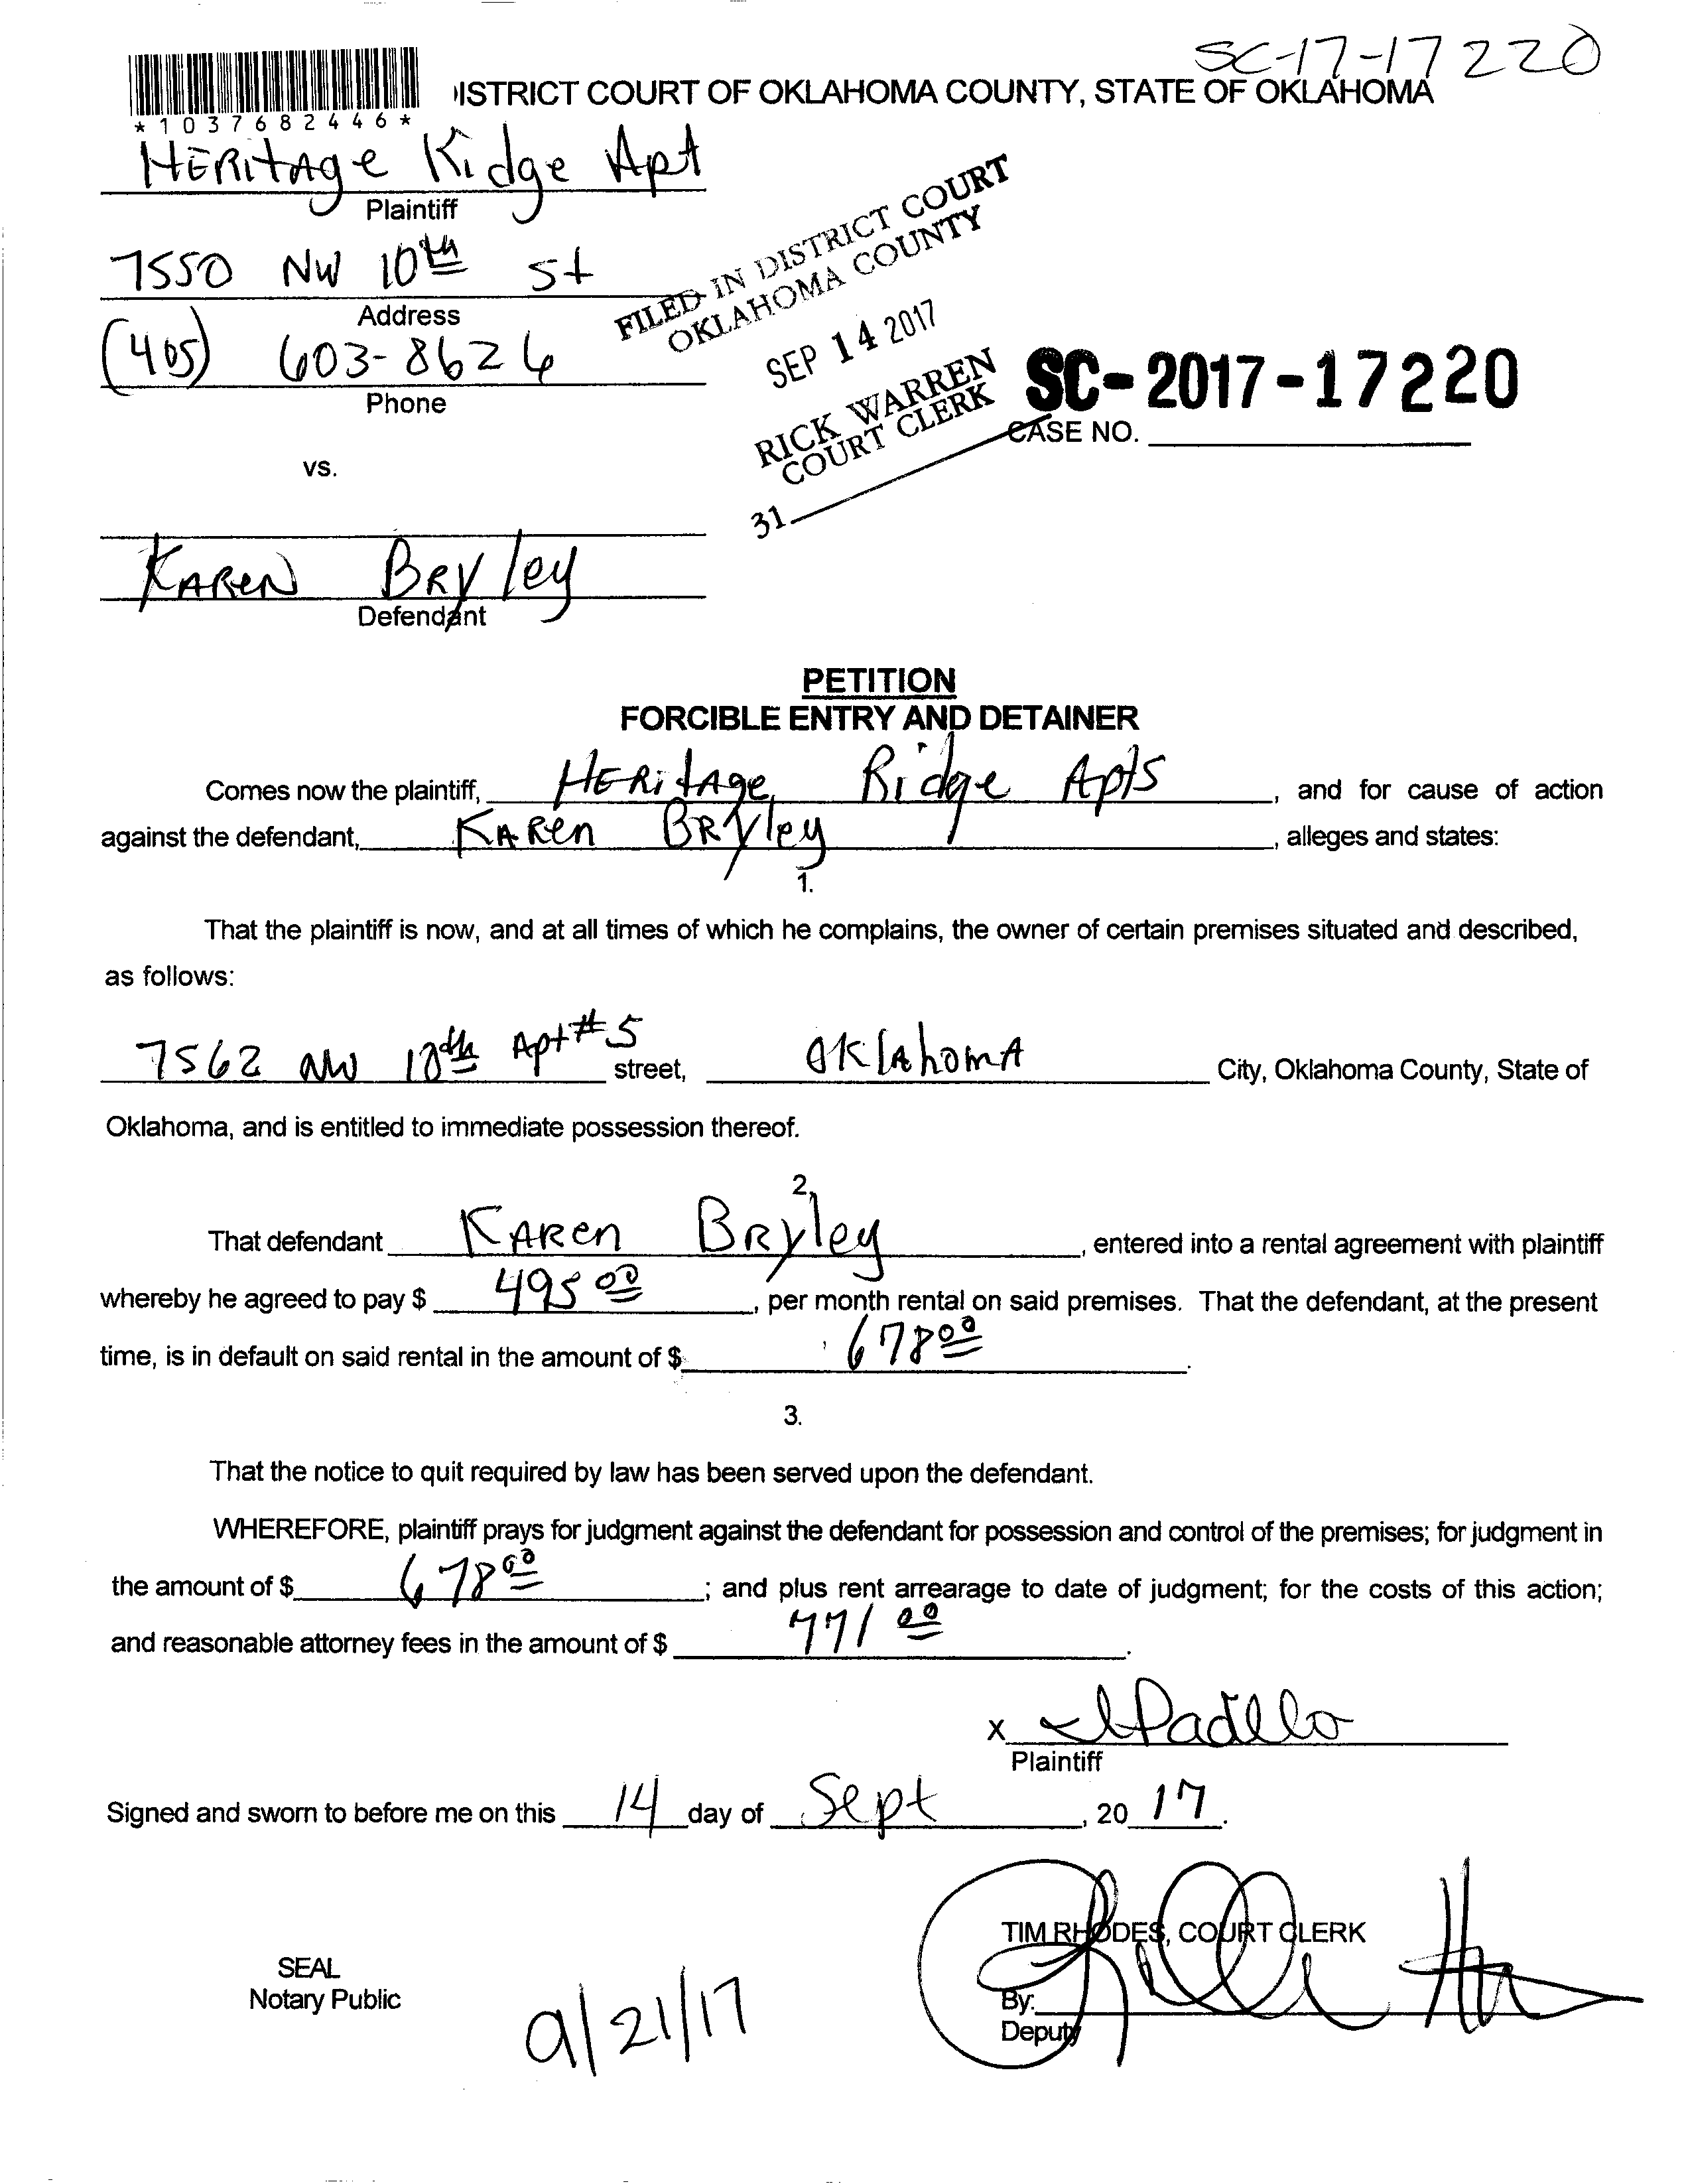 SC-17-17220
ISTRICT COURT OF OKLAHOMA COUNTY, STATE OF OKLAHOMA
*1037682446*
HERitAge Ridge Apt
Plaintiff
7550 NW 10th St
Address
(405) 603-8626
Phone
FILED IN DISTRICT COURT
OKLAHOMA COUNTY
SEP 14 2017
RICK WARREN
COURT CLERK
31
SC-2017-17220
CASE NO.
vs.
KAReN BRyley
Defendant
PETITION
FORCIBLE ENTRY AND DETAINER
Comes now the plaintiff, HERitAge Ridge Apts, and for cause of action
against the defendant, KARen BRyley, alleges and states:
1.
That the plaintiff is now, and at all times of which he complains, the owner of certain premises situated and described,
as follows:
7562 NW 10th Apt #5 street, OklahomA City, Oklahoma County, State of
Oklahoma, and is entitled to immediate possession thereof.
2.
That defendant KARen BRyley, entered into a rental agreement with plaintiff
whereby he agreed to pay $ 495 00, per month rental on said premises. That the defendant, at the present
time, is in default on said rental in the amount of $ 678 00.
3.
That the notice to quit required by law has been served upon the defendant.
WHEREFORE, plaintiff prays for judgment against the defendant for possession and control of the premises; for judgment in
the amount of $ 678 00; and plus rent arrearage to date of judgment; for the costs of this action;
and reasonable attorney fees in the amount of $ 771 00.
X Padilla
Plaintiff
Signed and sworn to before me on this 14 day of Sept, 2017.
TIM RHODES, COURT CLERK
SEAL
Notary Public
By:
Deputy
9/21/17